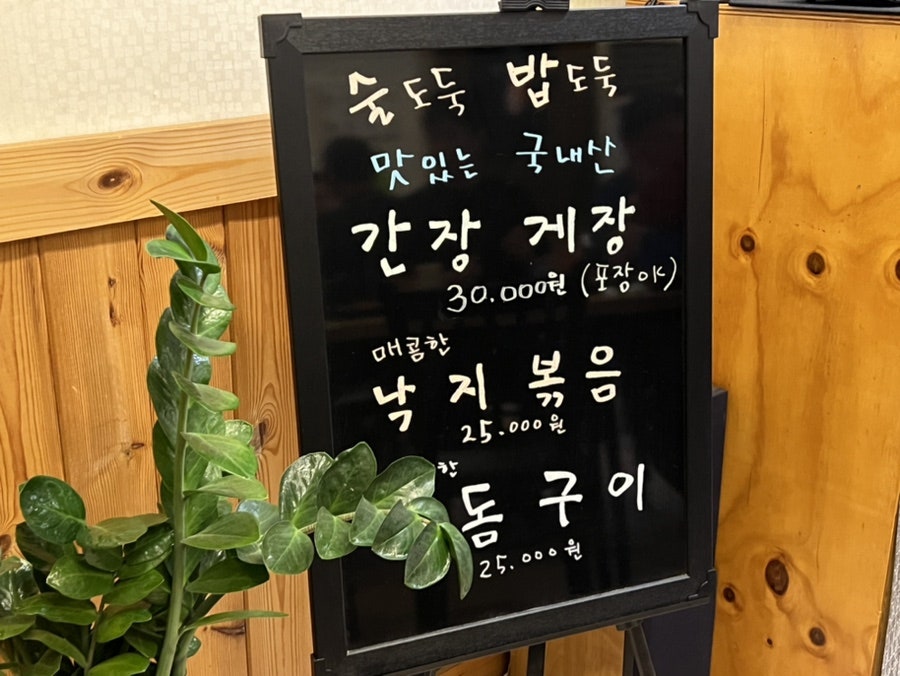 술도둑 밥도둑
맛있는 국내산
간장 게장
30.000원 (포장OK)
매콤한
낙지볶음
25.000원
한
돔구이
25.000원